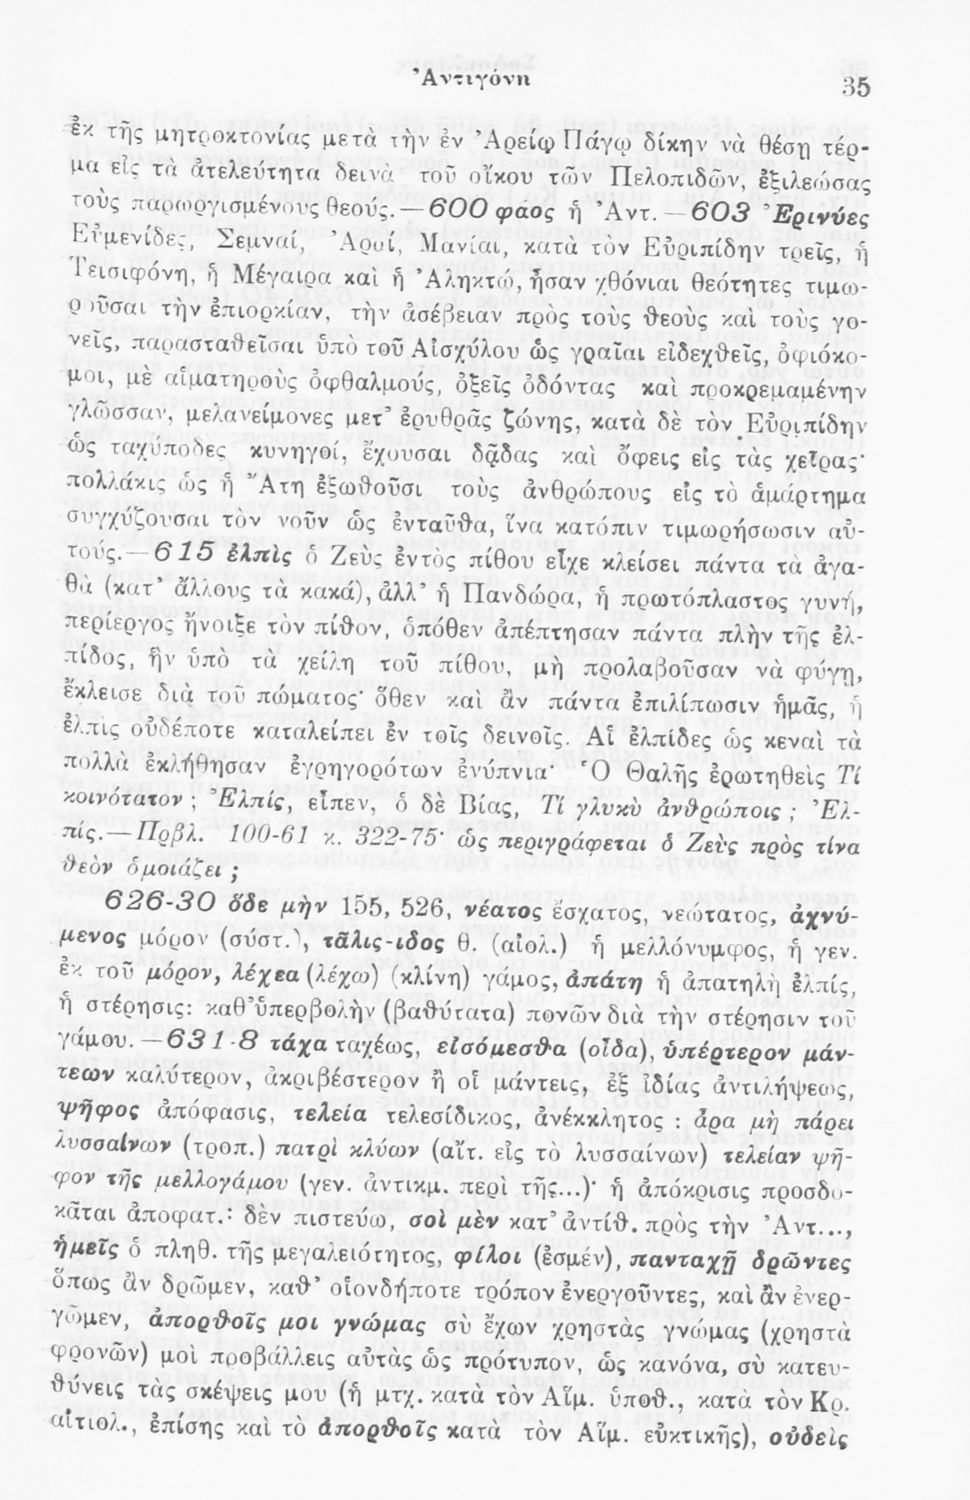 Ἀντιγόνη
35
ἐκ τῆς μητροκτονίας μετὰ τὴν ἐν Ἀρείῳ Πάγῳ δίκην νὰ θέσῃ τέρ-
μα εἰς τὰ ἀτελεύτητα δεινὰ τοῦ οἴκου τῶν Πελοπιδῶν, ἐξιλεώσας
τοὺς παρωργισμένους θεούς. — 600 φάος ἡ Ἀντ. — 603 Ἐρινύες
Εὐμενίδες, Σεμναί, Ἀραί, Μανίαι, κατὰ τὸν Εὐριπίδην τρεῖς, ἡ
Τεισιφόνη, ἡ Μέγαιρα καὶ ἡ Ἀληκτώ, ἦσαν χθόνιαι θεότητες τιμω-
ροῦσαι τὴν ἐπιορκίαν, τὴν ἀσέβειαν πρὸς τοὺς θεοὺς καὶ τοὺς γο-
νεῖς, παρασταθεῖσαι ὑπὸ τοῦ Αἰσχύλου ὡς γραῖαι εἰδεχθεῖς, ὀφιόκο-
μοι, μὲ αἱματηροὺς ὀφθαλμούς, ὀξεῖς ὀδόντας καὶ προκρεμαμένην
γλῶσσαν, μελανείμονες μετ' ἐρυθρᾶς ζώνης, κατὰ δὲ τὸν Εὐριπίδην
ὡς ταχύποδες κυνηγοί, ἔχουσαι δᾷδας καὶ ὄφεις εἰς τὰς χεῖρας·
πολλάκις ὡς ἡ Ἄτη ἐξωθοῦσι τοὺς ἀνθρώπους εἰς τὸ ἁμάρτημα
συγχύζουσαι τὸν νοῦν ὡς ἐνταῦθα, ἵνα κατόπιν τιμωρήσωσιν αὐ-
τούς. — 615 ἐλπὶς ὁ Ζεὺς ἐντὸς πίθου εἶχε κλείσει πάντα τὰ ἀγα-
θὰ (κατ' ἄλλους τὰ κακά), ἀλλ' ἡ Πανδώρα, ἡ πρωτόπλαστος γυνή,
περίεργος ἤνοιξε τὸν πίθον, ὁπόθεν ἀπέπτησαν πάντα πλὴν τῆς ἐλ-
πίδος, ἣν ὑπὸ τὰ χείλη τοῦ πίθου, μὴ προλαβοῦσαν νὰ φύγῃ,
ἔκλεισε διὰ τοῦ πώματος· ὅθεν καὶ ἂν πάντα ἐπιλίπωσιν ἡμᾶς, ἡ
ἐλπὶς οὐδέποτε καταλείπει ἐν τοῖς δεινοῖς. Αἱ ἐλπίδες ὡς κεναὶ τὰ
πολλὰ ἐκλήθησαν ἐγρηγορότων ἐνύπνια· Ὁ Θαλῆς ἐρωτηθεὶς Τί
κοινότατον ; Ἐλπίς, εἶπεν, ὁ δὲ Βίας, Τί γλυκὺ ἀνθρώποις ; Ἐλ-
πίς. — Πρβλ. 100-61 κ. 322-75· ὡς περιγράφεται ὁ Ζεὺς πρὸς τίνα
θεὸν ὁμοιάζει ;
626-30 ὅδε μὴν 155, 526, νέατος ἔσχατος, νεώτατος, ἀχνύ-
μενος μόρον (σύστ.), τᾶλις-ιδος θ. (αἰολ.) ἡ μελλόνυμφος, ἡ γεν.
ἐκ τοῦ μόρον, λέχεα (λέχω) (κλίνη) γάμος, ἀπάτη ἡ ἀπατηλὴ ἐλπίς,
ἡ στέρησις: καθ' ὑπερβολὴν (βαθύτατα) πονῶν διὰ τὴν στέρησιν τοῦ
γάμου. — 631-8 τάχα ταχέως, εἰσόμεσθα (οἶδα), ὑπέρτερον μάν-
τεων καλύτερον, ἀκριβέστερον ἢ οἱ μάντεις, ἐξ ἰδίας ἀντιλήψεως,
ψῆφος ἀπόφασις, τελεία τελεσίδικος, ἀνέκκλητος : ἆρα μὴ πάρει
λυσσαίνων (τροπ.) πατρὶ κλύων (αἴτ. εἰς τὸ λυσσαίνων) τελείαν ψῆ-
φον τῆς μελλογάμου (γεν. ἀντικμ. περὶ τῆς...)· ἡ ἀπόκρισις προσδο-
κᾶται ἀποφατ.: δὲν πιστεύω, σοὶ μὲν κατ' ἀντίθ. πρὸς τὴν Ἀντ...,
ἡμεῖς ὁ πληθ. τῆς μεγαλειότητος, φίλοι (ἐσμέν), πανταχῇ δρῶντες
ὅπως ἂν δρῶμεν, καθ' οἱονδήποτε τρόπον ἐνεργοῦντες, καὶ ἂν ἐνερ-
γῶμεν, ἀπορθοῖς μοι γνώμας σὺ ἔχων χρηστὰς γνώμας (χρηστὰ
φρονῶν) μοὶ προβάλλεις αὐτὰς ὡς πρότυπον, ὡς κανόνα, σὺ κατευ-
θύνεις τὰς σκέψεις μου (ἡ μτχ. κατὰ τὸν Αἵμ. ὑποθ., κατὰ τὸν Κρ.
αἰτιολ., ἐπίσης καὶ τὸ ἀπορθοῖς κατὰ τὸν Αἵμ. εὐκτικῆς), οὐδεὶς